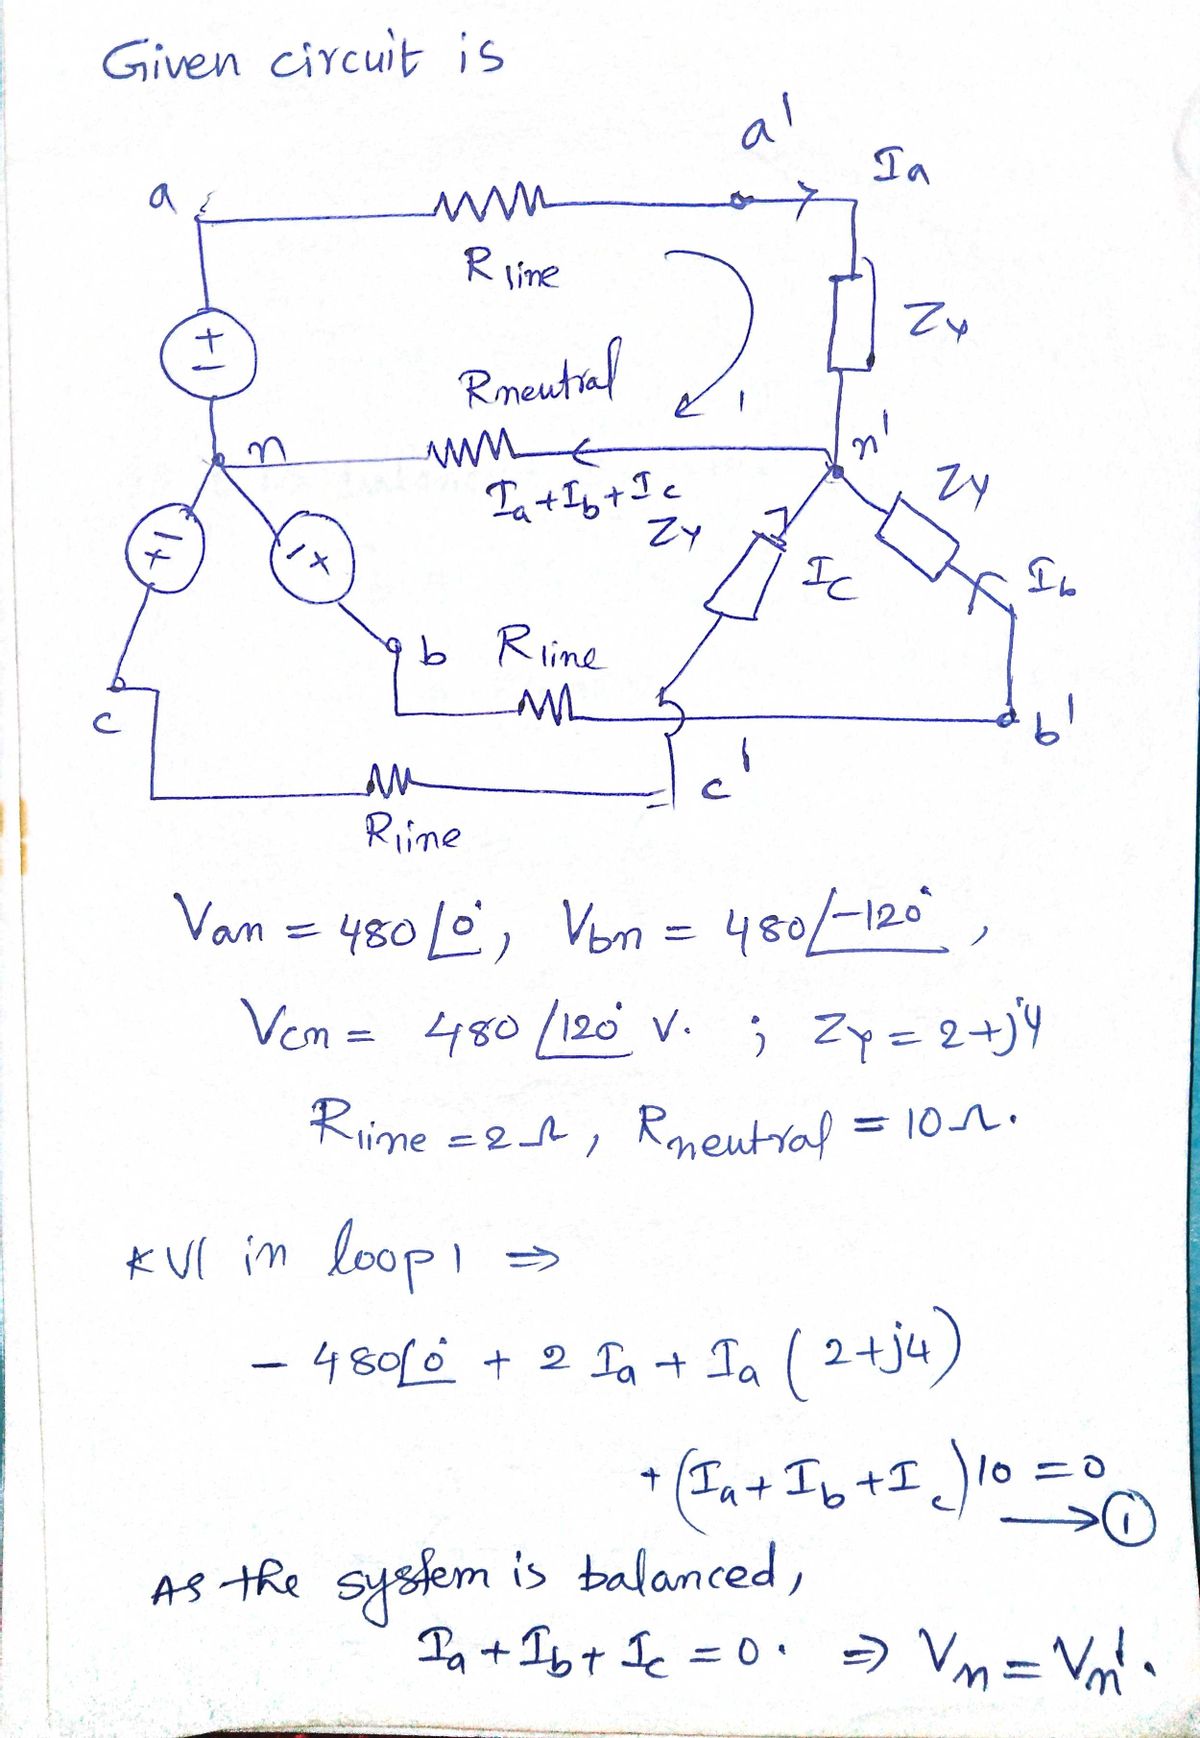 Given circuit is
a'
Ia
a
R line
+
-
Zy
Rneutral
1
n
n'
Ia+Ib+Ic
Zy
Zy
Ic
Ib
b
Rline
c
b'
c'
Rline
Van = 480∠0°, Vbn = 480∠-120°,
Vcn = 480∠120° V. ; Zy = 2+j4
Rline = 2Ω, Rneutral = 10Ω.
KVl in loop 1 ⇒
- 480∠0° + 2 Ia + Ia (2+j4)
+ (Ia + Ib + Ic)10 = 0 → ①
As the system is balanced,
Ia + Ib + Ic = 0. ⇒ Vn = Vn'.